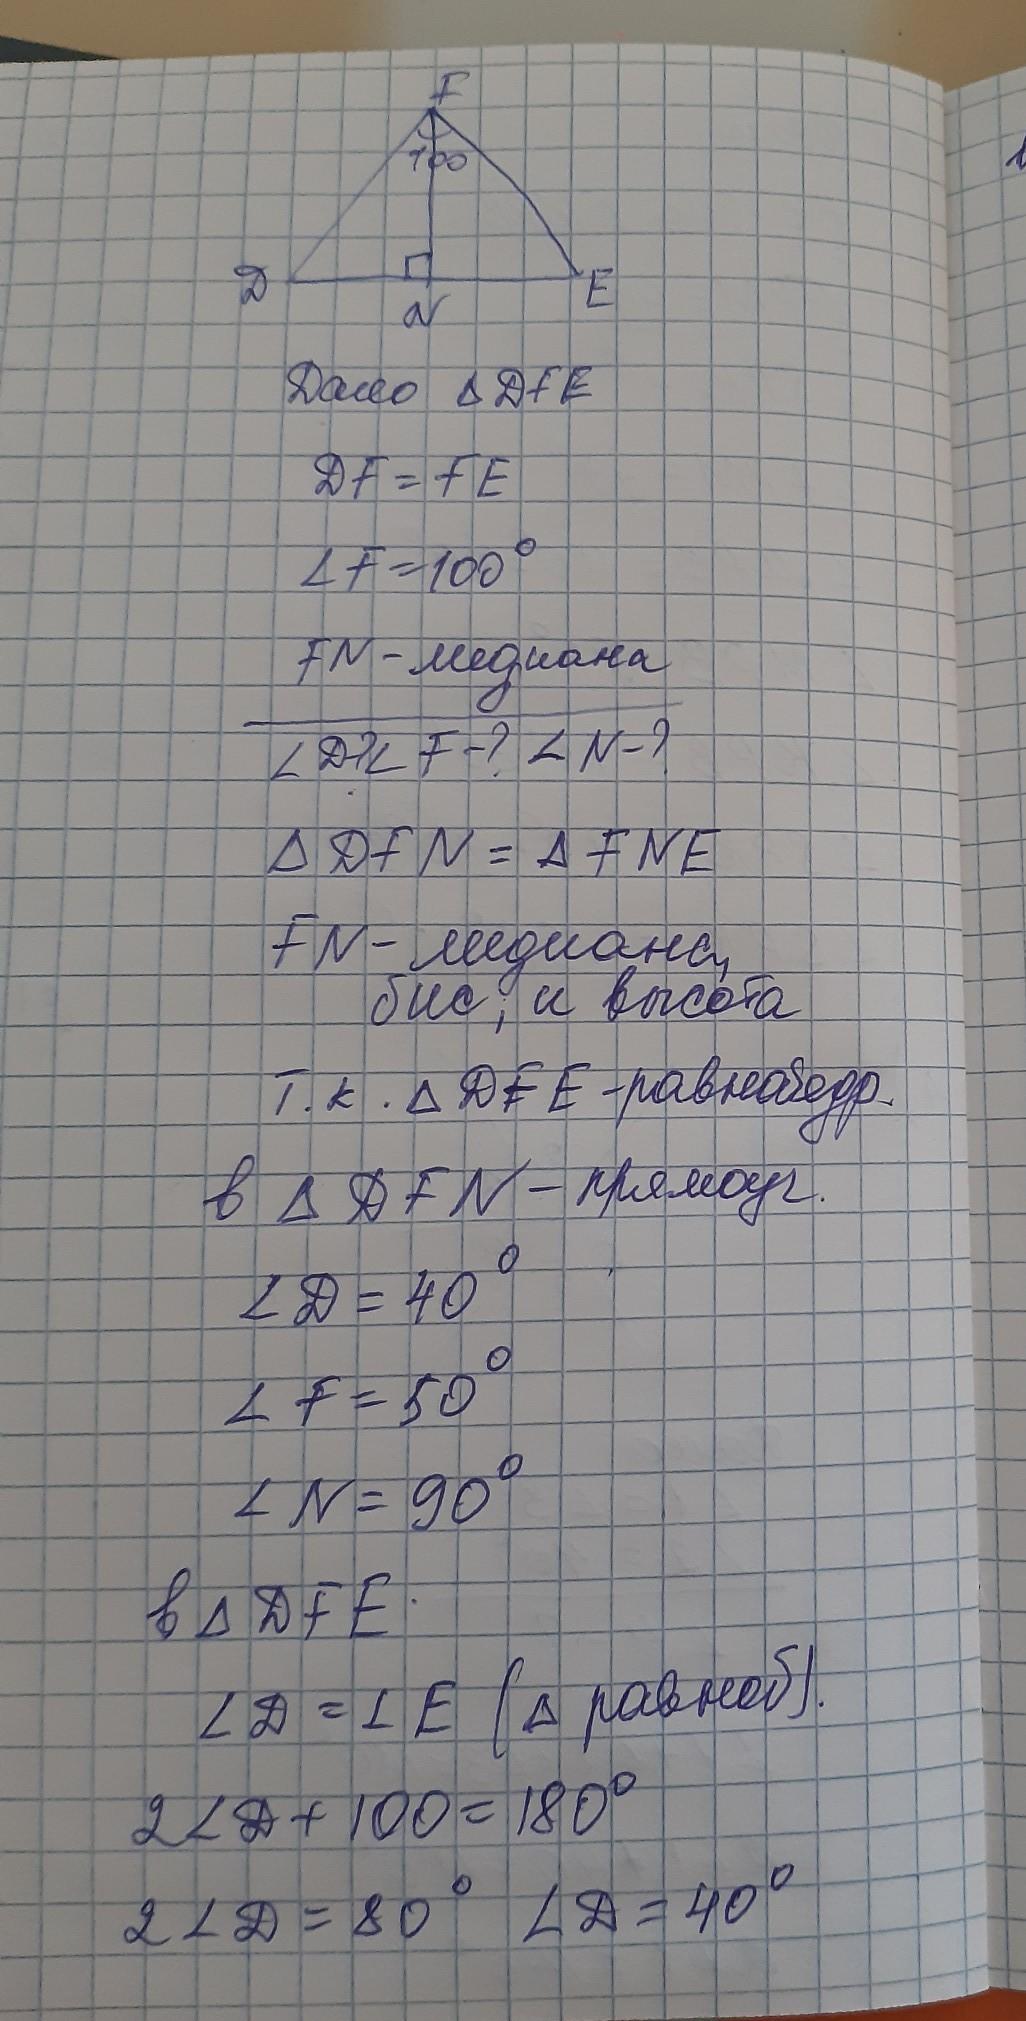 F
100
D
E
N
Дано Δ DFE
DF = FE
∠F = 100°
FN - медиана
∠D-? ∠F-? ∠N-?
Δ DFN = Δ FNE
FN - медиана,
бис, и высота
Т.к. Δ DFE - равнобедр.
в Δ DFN - прямоуг.
∠D = 40°
∠F = 50°
∠N = 90°
в Δ DFE
∠D = ∠E (Δ равноб).
2∠D + 100 = 180°
2∠D = 80° ∠D = 40°